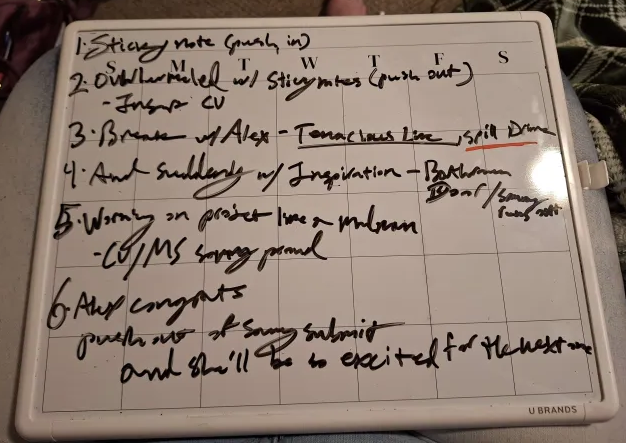 1. Sticky note (push in)
S M T W T F S
2. Overwhelmed w/ Stickynotes (push out)
- Insp. CU
3. Break w/ Alex - Tenacious Line, spill Drink
4. And suddenly w/ Inspiration - Bathroom
Door / Sammy
runs out
5. Working on project like a madman
- CU/MS Sammy proud
6. Alex congrats
push out of Sammy submit
and she'll be so excited for the next one
U BRANDS